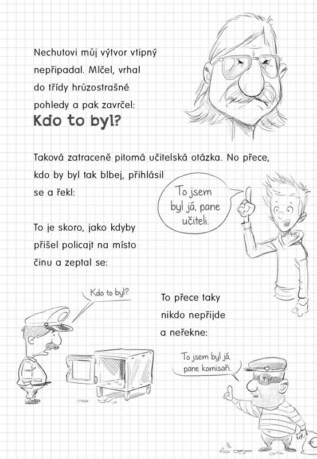 Nechutovi můj výtvor vtipný
nepřipadal. Mlčel, vrhal
do třídy hrůzostrašné
pohledy a pak zavrčel:
Kdo to byl?
Taková zatraceně pitomá učitelská otázka. No přece,
kdo by byl tak blbej, přihlásil
se a řekl:
To jsem
byl já, pane
učiteli.
To je skoro, jako kdyby
přišel policajt na místo
činu a zeptal se:
Kdo to byl?
To přece taky
nikdo nepřijde
a neřekne:
To jsem byl já,
pane komisaři.